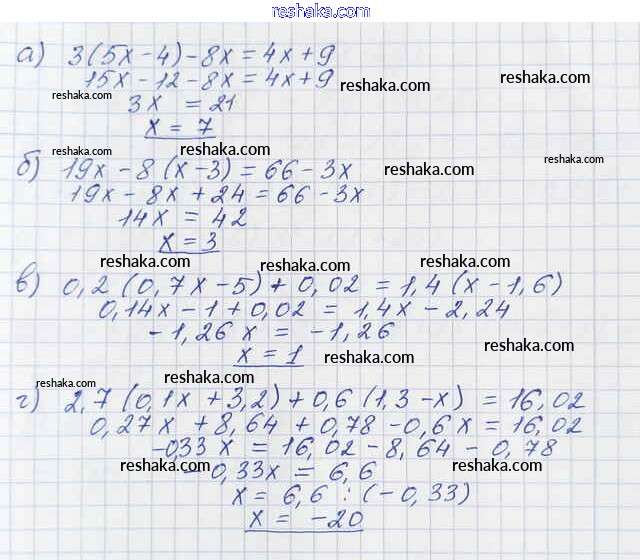 www.reshaka.ru
а) 3(5x-4)-8x=4x+9
15x-12-8x=4x+9
reshaka.com
reshaka.com
3x =21
reshaka.com
x = 7
reshaka.com
reshaka.com
reshaka.com
б) 19x-8(x-3)=66-3x
reshaka.com
19x-8x+24=66-3x
14x = 42
reshaka.com
x=3
reshaka.com
reshaka.com
reshaka.com
в) 0,2(0,7x-5)+0,02 =1,4(x-1,6)
0,14x-1+0,02 = 1,4x-2,24
-1,26x = -1,26
reshaka.com
x=1
reshaka.com
reshaka.com
reshaka.com
г) 2,7(0,1x+3,2)+0,6(1,3-x) =16,02
0,27x+8,64+0,78-0,6x=16,02
-033x = 16,02-8,64-0,78
reshaka.com
-0,33x = 6,6
reshaka.com
reshaka.com
x= 6,6 : (-0,33)
x = -20
reshaka.com
reshaka.com
reshaka.com
www.reshaka.ru